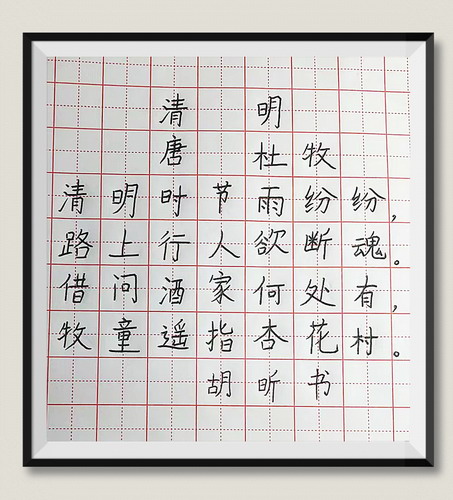 清 明
唐 杜牧
清明时节雨纷纷，
路上行人欲断魂。
借问酒家何处有，
牧童遥指杏花村。
胡昕书